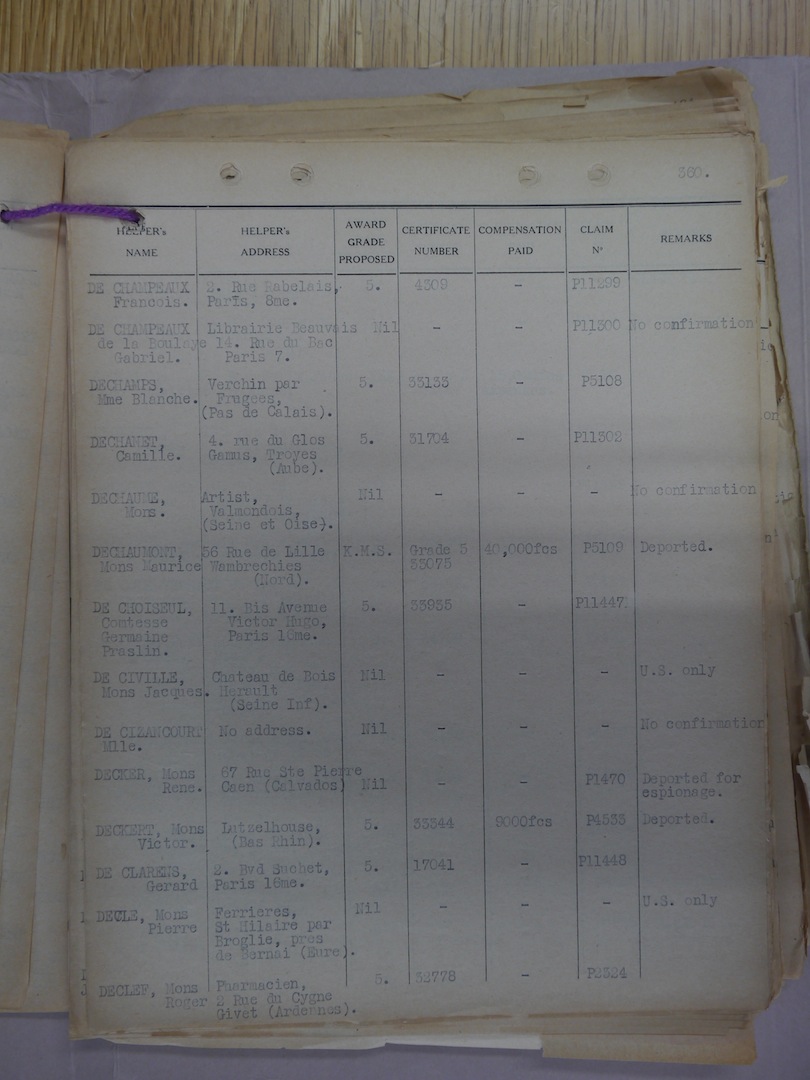 360.
HELPER's NAME HELPER's ADDRESS AWARD GRADE PROPOSED CERTIFICATE NUMBER COMPENSATION PAID CLAIM Nº REMARKS
DE CHAMPEAUX 2. Rue Rabelais, 5. 4309 - P11299
Francois. Paris, 8me.
DE CHAMPEAUX Librairie Beauvais Nil - - P11300 No confirmation
de la Boulaye 14. Rue du Bac
Gabriel. Paris 7.
DECHAMPS, Verchin par 5. 33133 - P5108
Mme Blanche. Frugees,
(Pas de Calais).
DECHANET, 4. rue du Glos 5. 31704 - P11302
Camille. Gamus, Troyes
(Aube).
DECHAUME, Artist, Nil - - - No confirmation
Mons. Valmondois,
(Seine et Oise).
DECHAUMONT, 56 Rue de Lille K.M.S. Grade 5 40,000fcs P5109 Deported.
Mons Maurice Wambrechies 33075
(Nord).
DE CHOISEUL, 11. Bis Avenue 5. 33935 - P11447
Comtesse Victor Hugo,
Germaine Paris 10me.
Praslin.
DE CIVILLE, Chateau de Bois Nil - - - U.S. only
Mons Jacques. Herault
(Seine Inf).
DE CIZANCOURT No address. Nil - - - No confirmation
Mlle.
DECKER, Mons 67 Rue Ste Pierre Nil - - P1470 Deported for
Rene. Caen (Calvados) espionage.
DECKERT, Mons Lutzelhouse, 5. 33344 9000fcs P4533 Deported.
Victor. (Bas Rhin).
DE CLARENS, 2. Bvd Suchet, 5. 17041 - P11448
Gerard Paris 16me.
DECLE, Mons Ferrieres, Nil - - - U.S. only
Pierre St Hilaire par
Broglie, pres
de Bernai (Eure).
DECLEF, Mons Pharmacien, 5. 32778 - P2324
Roger 2 Rue du Cygne
Givet (Ardennes).